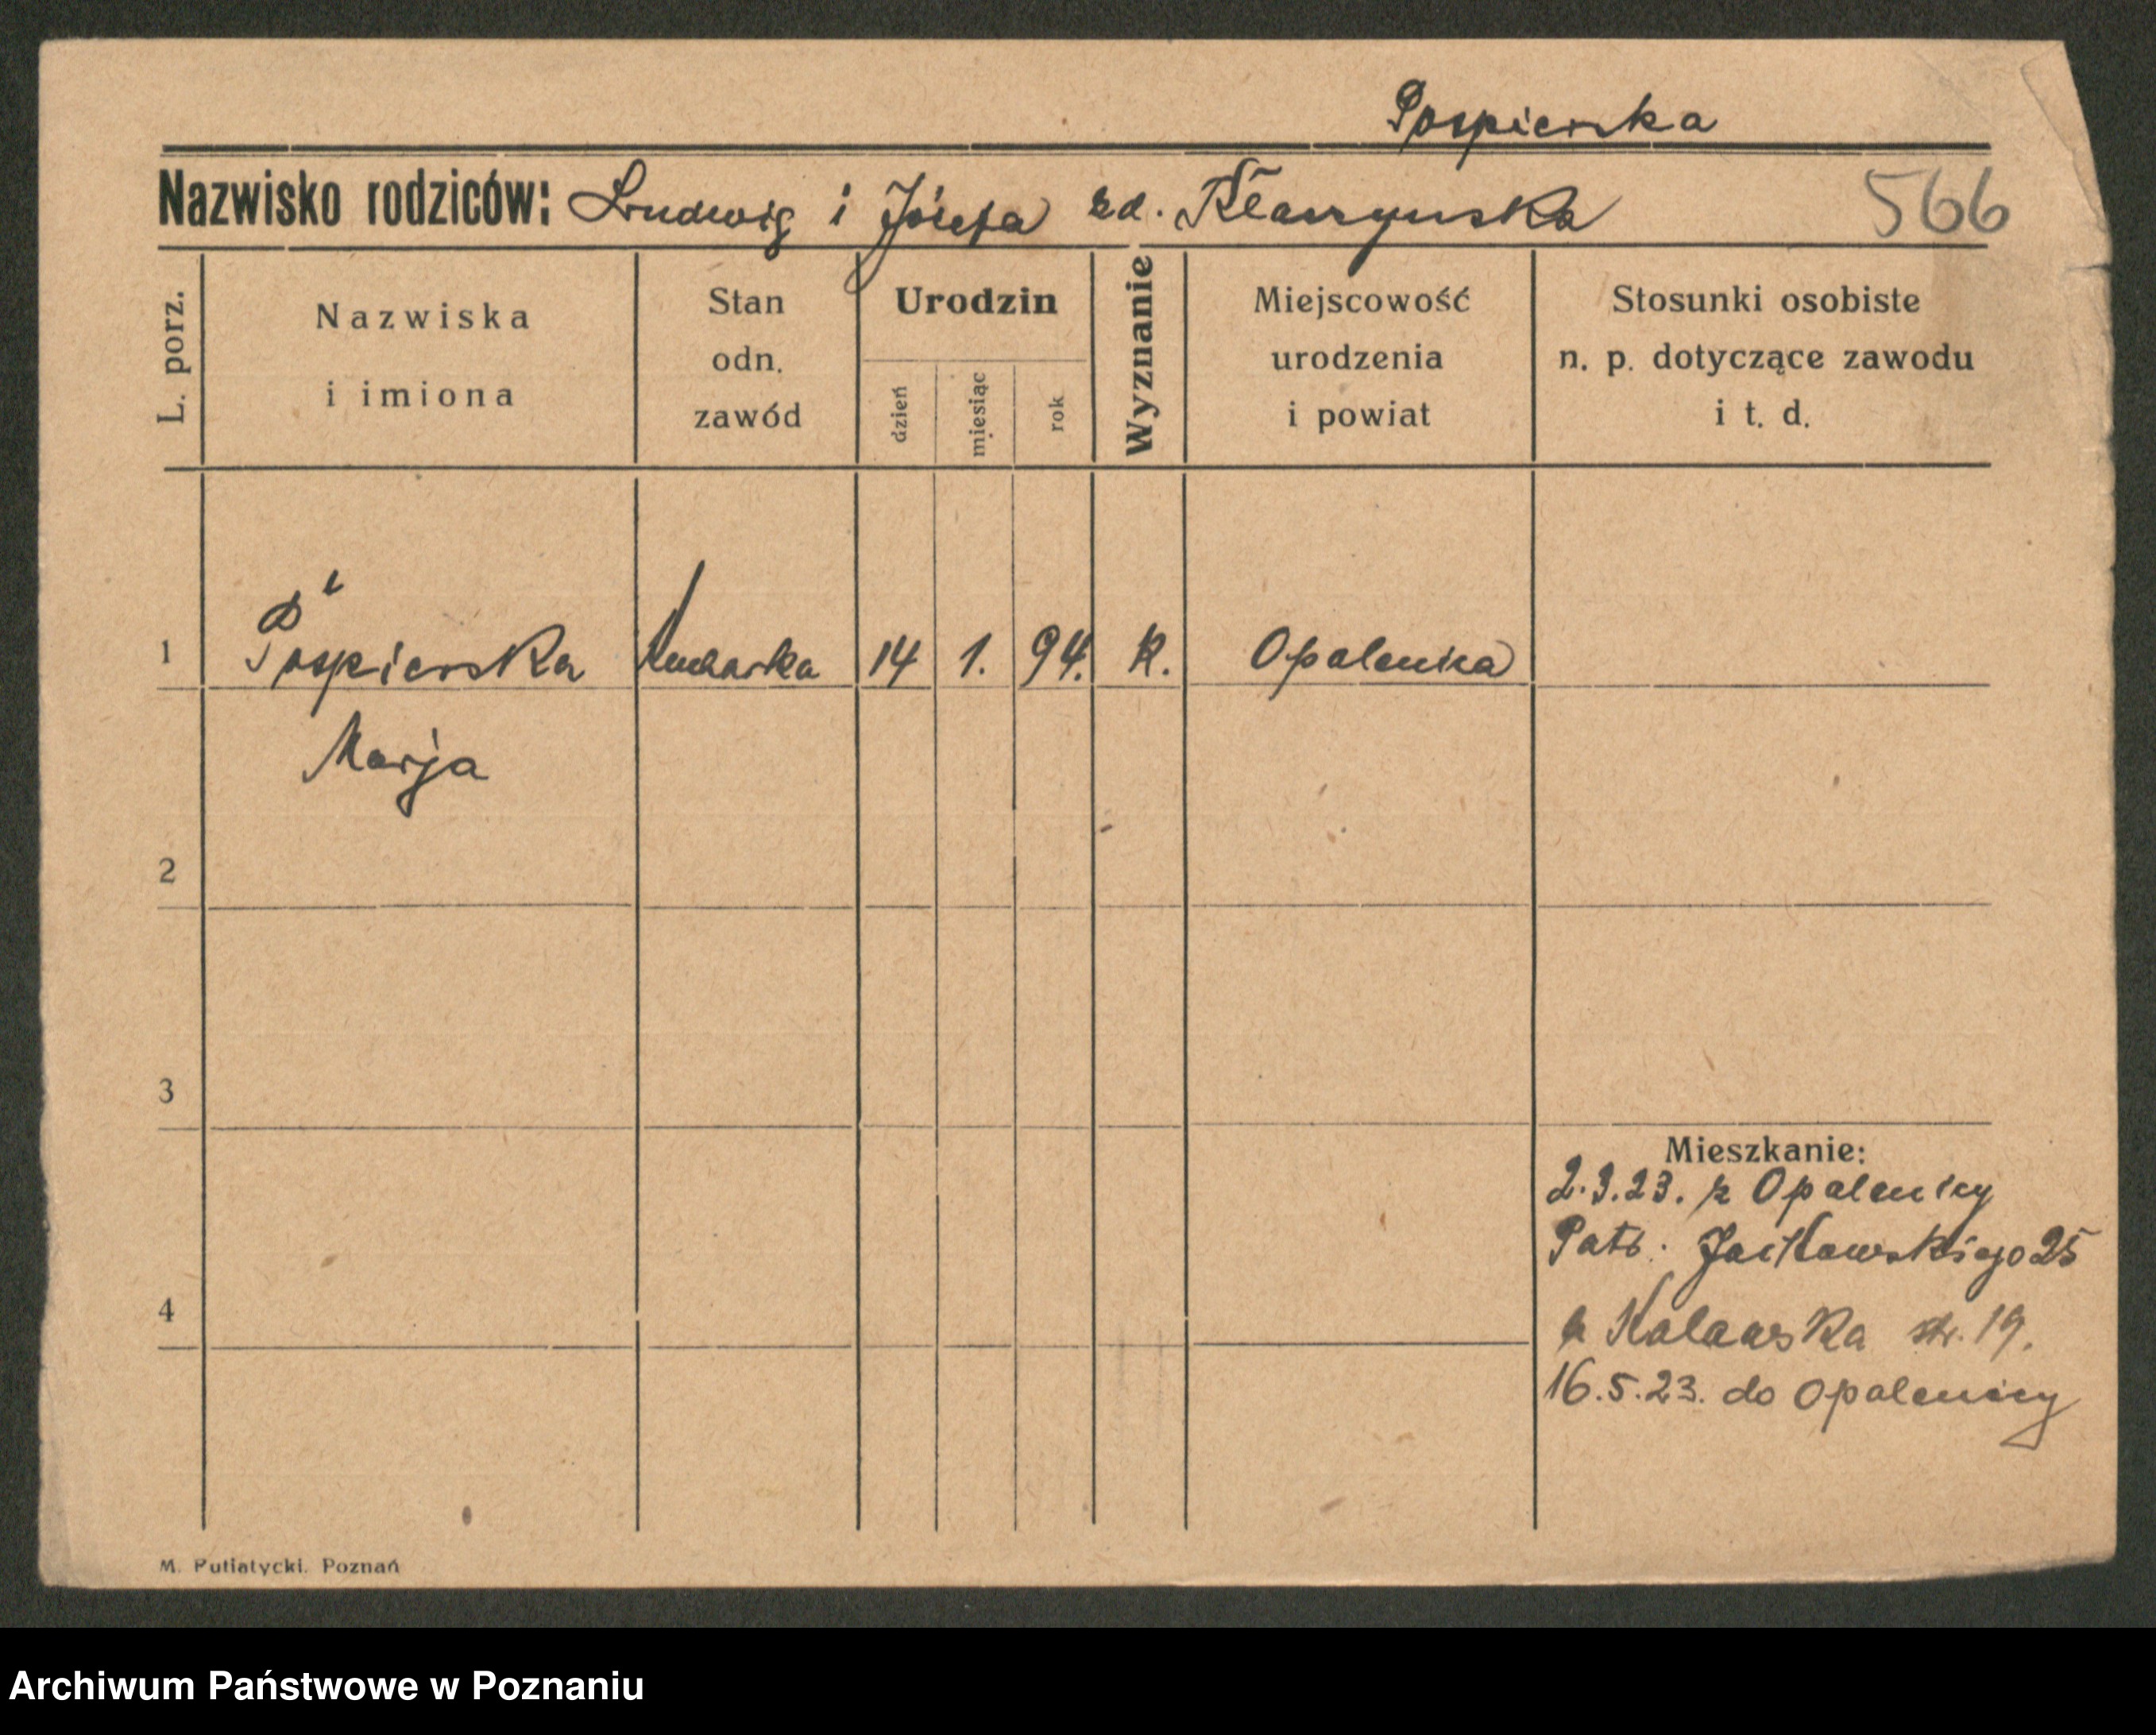 Pospierska
Nazwisko rodziców: Ludwig i Józefa zd. Kłaczyńska 566
L. porz.
Nazwiska
i imiona
Stan
odn.
zawód
Urodzin
dzień
miesiąc
rok
Wyznanie
Miejscowość
urodzenia
i powiat
Stosunki osobiste
n. p. dotyczące zawodu
i t. d.
1 Pospierska kucharka 14 1. 94. k. Opalenica
Marja
2
3
4
Mieszkanie:
2.3.23. z Opalenicy
Patr. Jackowskiego 25
str. 19.
16.5.23. do Opalenicy
M. Putiatycki. Poznań
Archiwum Państwowe w Poznaniu